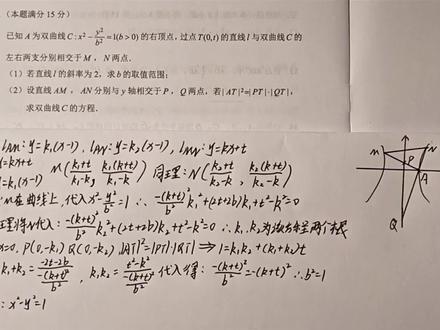 (本题满分 15 分)
已知 A 为双曲线 C: x² - y²/b² = 1(b>0) 的右顶点,过点 T(0,t) 的直线 l 与双曲线 C 的
左右两支分别相交于 M,N 两点.
(1)若直线 l 的斜率为 2,求 b 的取值范围;
(2)设直线 AM,AN 分别与 y 轴相交于 P,Q 两点,若 |AT|²=|PT|·|QT|,
求双曲线 C 的方程.
: y=k₁(x-1), : y=k₂(x-1), : y=kx+t
y=kx+t
y=k₁(x-1) M(k₁+t/k₁-k, k₁(k+t)/k₁-k) 同理: N(k₂+t/k₂-k, k₂(k+t)/k₂-k)
M在曲线上,代入x²-y²/b²=1 ∴ -(k+t)²/b² k₁²+(2t+2k)k₁+t²-k²=0
理将N代入: -(k+t)²/b² k₂²+(2t+2k)k₂+t²-k²=0 ∴ k₁,k₂为
x=0, P(0,-k₁) Q(0,-k₂) |AT|²=|PT|·|QT| ⇒ 1=k₁k₂+(k₁+k₂)t
k₁+k₂= -2t-2k/-(k+t)²/b², k₁k₂= t²-k²/-(k+t)²/b² 代入得: -(k+t)²/b²=-(k+t)² ∴ b²=1
: x²-y²=1
M
N
P
A
Q